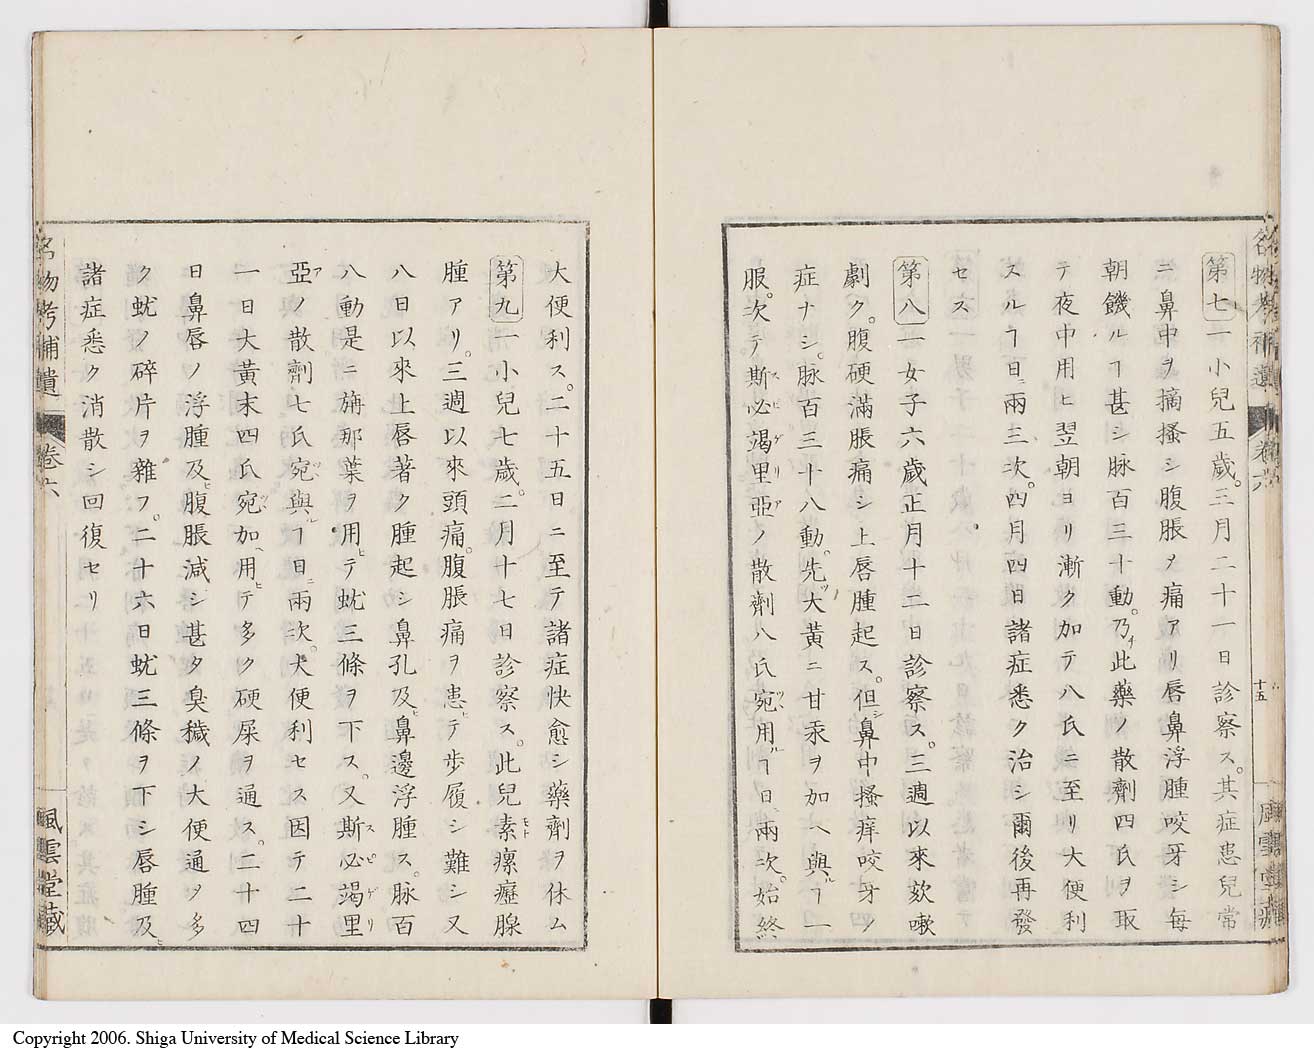 第七一小兒五歲。三月二十一日診察ス。其症患兒常
ニ鼻中ヲ摘搔シ腹脹ヲ痛アリ唇鼻浮腫咬牙シ毎
朝饑ルヿ甚シ脉百三十動。乃チ此藥ノ散劑四氏ヲ取
テ夜中用ヒ翌朝ヨリ漸ク加テ八氏ニ至リ大便利
スルヿ日ニ兩三次。四月四日諸症悉ク治シ爾後再發
セス。
第八一女子六歲正月十二日診察ス。三週以來欬嗽
劇ク。腹硬滿脹痛シ上唇腫起ス。但シ鼻中搔痒咬牙ノ
症ナシ。脉百三十八動。先ツ大黃ニ甘汞ヲ加ヘ與ルヿ一
服。次テ斯必竭里亞ノ散劑八氏宛用ルヿ日ニ兩次。始終
スピゲリア
ツヽ
大便利ス。二十五日ニ至テ諸症快愈シ藥劑ヲ休ム
第九一小兒七歲。二月十七日診察ス。此兒素ト瘰癧腺
腫アリ。三週以來頭痛。腹脹痛ヲ患ヒテ步履シ難シ又
八日以來上唇著ク腫起シ鼻孔及ヒ鼻邊浮腫ス。脉百
八動是ニ旃那葉ヲ用ヒテ蚘三條ヲ下ス。又斯必竭里
スピゲリ
亞ノ散劑七氏宛與ルヿ日ニ兩次。大便利セス因テ二十
ア
ツヽ
一日大黃末四氏宛加ヘ用ヒテ多ク硬屎ヲ通ス。二十四
ツヽ
日鼻唇ノ浮腫及ヒ腹脹減シ甚タ臭穢ノ大便通ヲ多
ク蚘ノ碎片ヲ雜フ。二十六日蚘三條ヲ下シ唇腫及ヒ
諸症悉ク消散シ回復セリ
名物考補遺
卷六
十五
風雲堂藏
名物考補遺
卷六
風雲堂藏
Copyright 2006. Shiga University of Medical Science Library